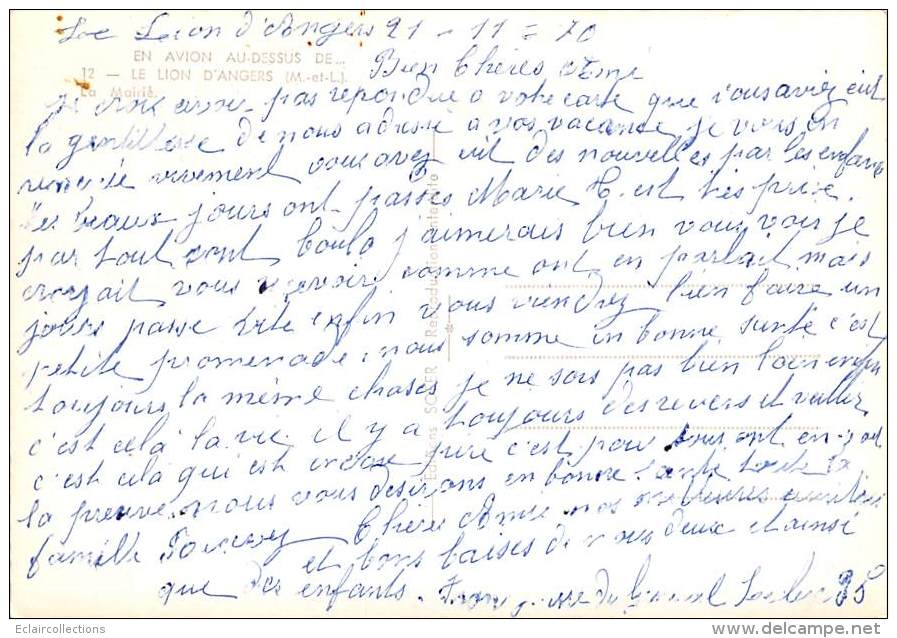 Le Lion d'Angers 21 - 11 = 70
EN AVION AU-DESSUS DE...
12 — LE LION D'ANGERS (M.-et-L.).
La Mairie.
Bien Chères Amie
je crois avoir pas repondue a votre carte que vous aviez eut
la gentillesse de nous adresse a vos vacance je vous en
vivement vous avez eut des nouvelles par les enfants
les beaux jours ont passés Marie T. est très prise
par tout sont boulo j'aimerais bien vous voir je
croyait vous revoir comme ont en parlait mais
jours passe vite enfin vous viendrez bien faire un
petite promenade, nous somme en bonne santé c'est
toujours la même choses je ne sors pas bien loin enfin
c'est cela la vie il y a toujours des revers et veiller
c'est cela qui est encore pire c'est pour tous ont en
la preuve nous vous desirons en bonne santé toute la
famille Chères Amie nos meilleures amitiés
et bons baises de nous deux et ainsi
que des enfants. du General Leclerc 35
Editions SOFER Reproduction Interdite
Eclaircollections
www.delcampe.net